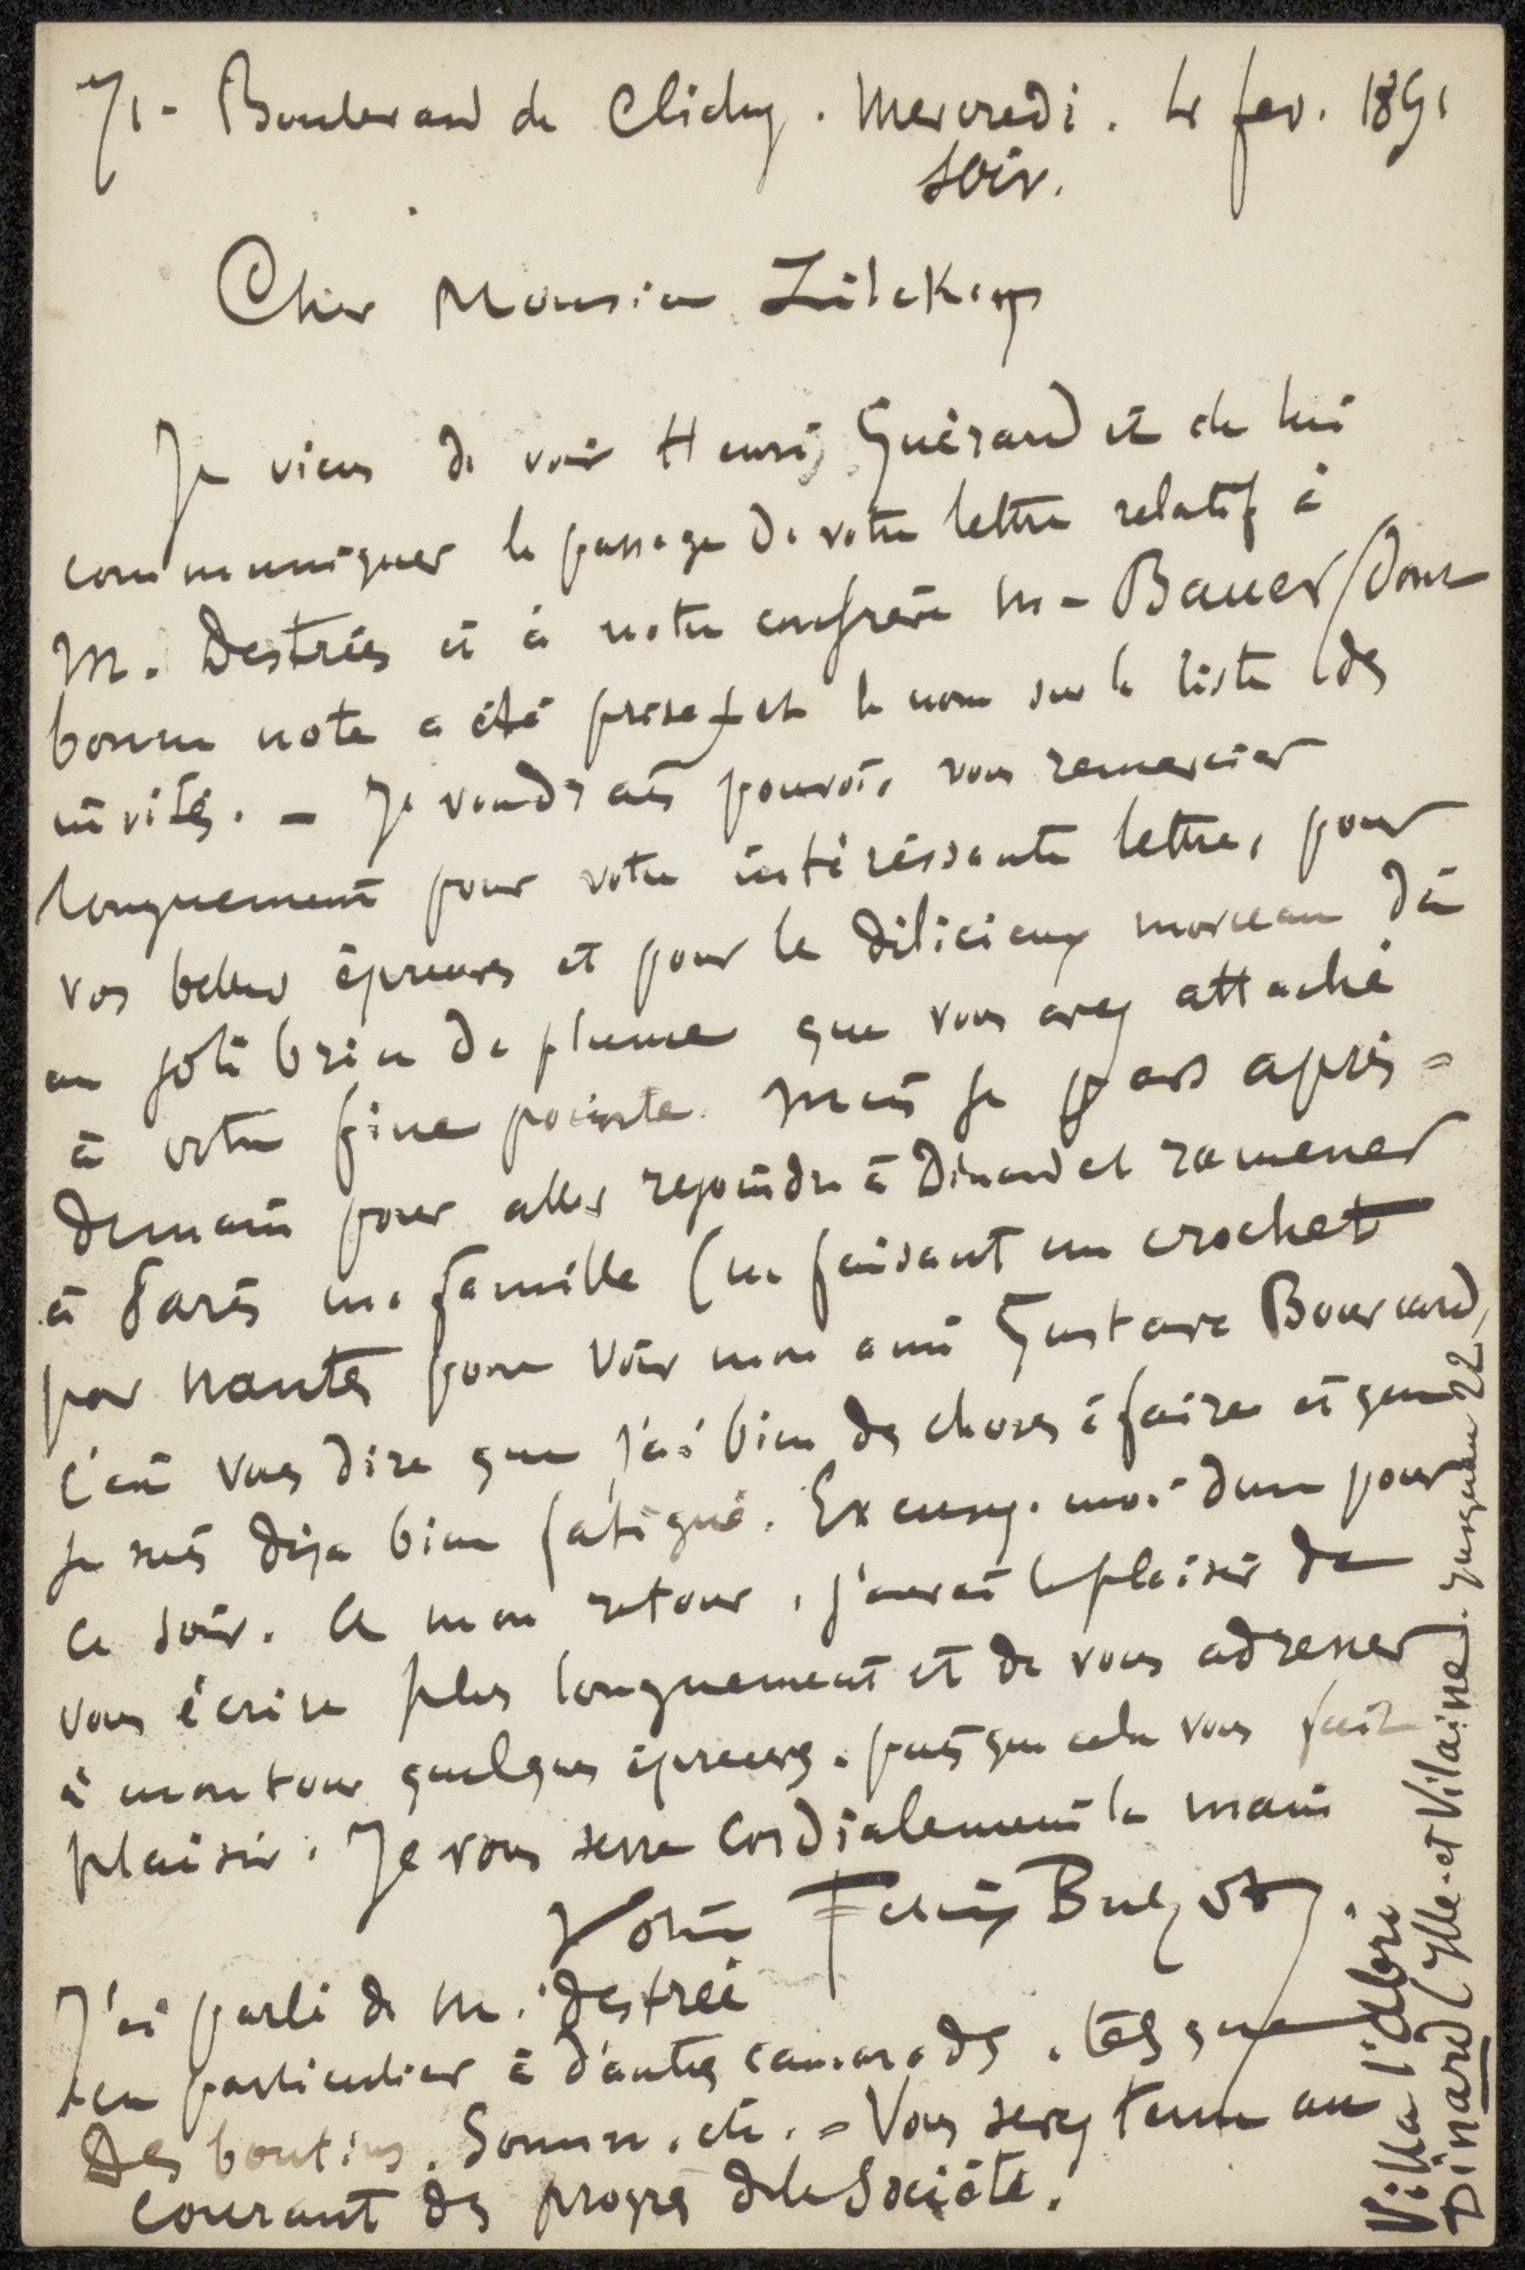 71 - Boulevard de Clichy. Mercredi. 4 fev. 1891
soir.
Cher Monsieur Zilcken
Je viens de voir Henri Guérard et de lui
communiquer le passage de votre lettre relatif à
M. Destrées et à notre confrère M - Bauer / dont
bonne note a été prise / et le nom sur la liste des
invités. - Je voudrais pouvoir vous remercier
longuement pour votre intéressante lettre, pour
vos belles épreuves et pour le délicieux morceau dû
au joli brin de plume que vous avez attaché
à votre fine pointe. Mais je pars après-
demain pour aller rejoindre à Dinard et ramener
à Paris ma famille (en faisant un crochet
par Nantes pour voir mon ami Gustave Bourcard,
c'est vous dire que j'ai bien des choses à faire et que
je suis déjà bien fatigué. Excusez-moi donc pour
ce soir. A mon retour, j'aurai le plaisir de
vous écrire plus longuement et de vous adresser
à mon tour quelques épreuves, puisque cela vous fait
plaisir. Je vous serre cordialement la main
Votre Felix Buhot
J'ai parlé de M. Destrée
en particulier à d'autres camarades, tels que
Des boutins, Somm, etc. = Vous serez tenu au
courant des progrès de la Société.
Villa l'Idéori
Dinard (Ylle-et-Vilaine). jusqu'au 22